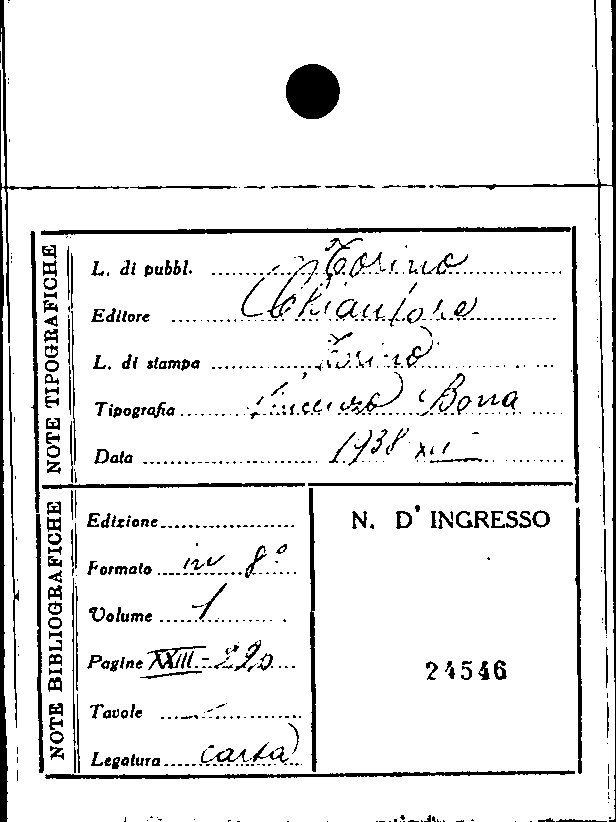 NOTE TIPOGRAFICHE
L. di pubbl. Torino
Editore Chiantore
L. di stampa Torino
Tipografia Vincenzo Bona
Data 1938 XII
NOTE BIBLIOGRAFICHE
Edizione
Formato in 8°
Volume 1
Pagine XXIII - 220
Tavole -
Legatura carta
N. D' INGRESSO
24546